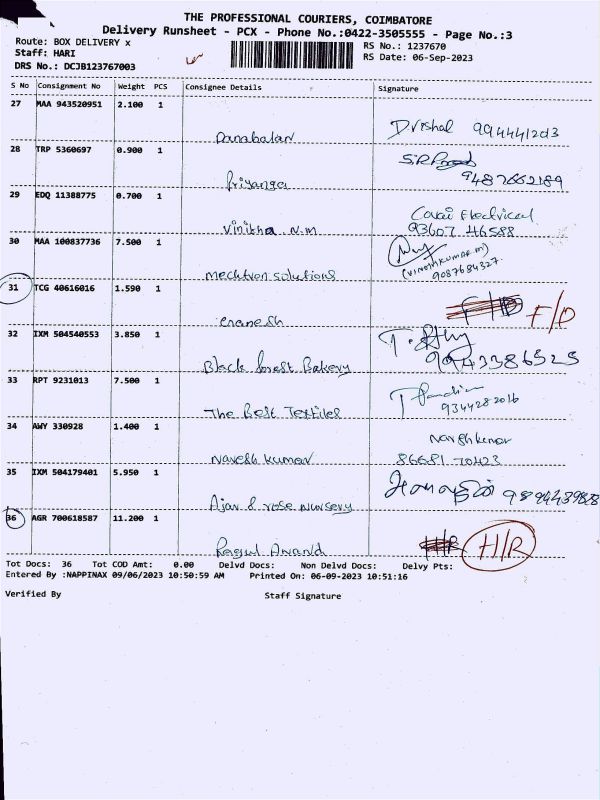 THE PROFESSIONAL COURIERS, COIMBATORE
Delivery Runsheet - PCX - Phone No.:0422-3505555 - Page No.:3
Route: BOX DELIVERY x
RS No.: 1237670
Staff: HARI
RS Date: 06-Sep-2023
DRS No.: DCJB123767003
S No Consignment No Weight PCS Consignee Details Signature
27 MAA 943520951 2.100 1
Danabalan D.vishal
28 TRP 5360697 0.900 1
Priyanga 9487662189
29 EDQ 11388775 0.700 1
Vinitha N.M Covai Electrical
93607 46588
30 MAA 100837736 7.500 1
mechtron solutions (VINOTHKUMAR.M)
9087684327
31 TCG 40616016 1.590 1
F/D
32 IXM 504540553 3.850 1
Black forest Bakery 9943386525
33 RPT 9231013 7.500 1
The Best Textiles 9344282016
34 AWY 330928 1.400 1
Navesh kumar 86681 70423
35 IXM 504179401 5.950 1
Ajav & rose Nursery
36 AGR 700618587 11.200 1
Ragul Anand H/R
Tot Docs: 36 Tot COD Amt: 0.00 Delvd Docs: Non Delvd Docs: Delvy Pts:
Entered By :NAPPINAX 09/06/2023 10:50:59 AM Printed On: 06-09-2023 10:51:16
Verified By Staff Signature